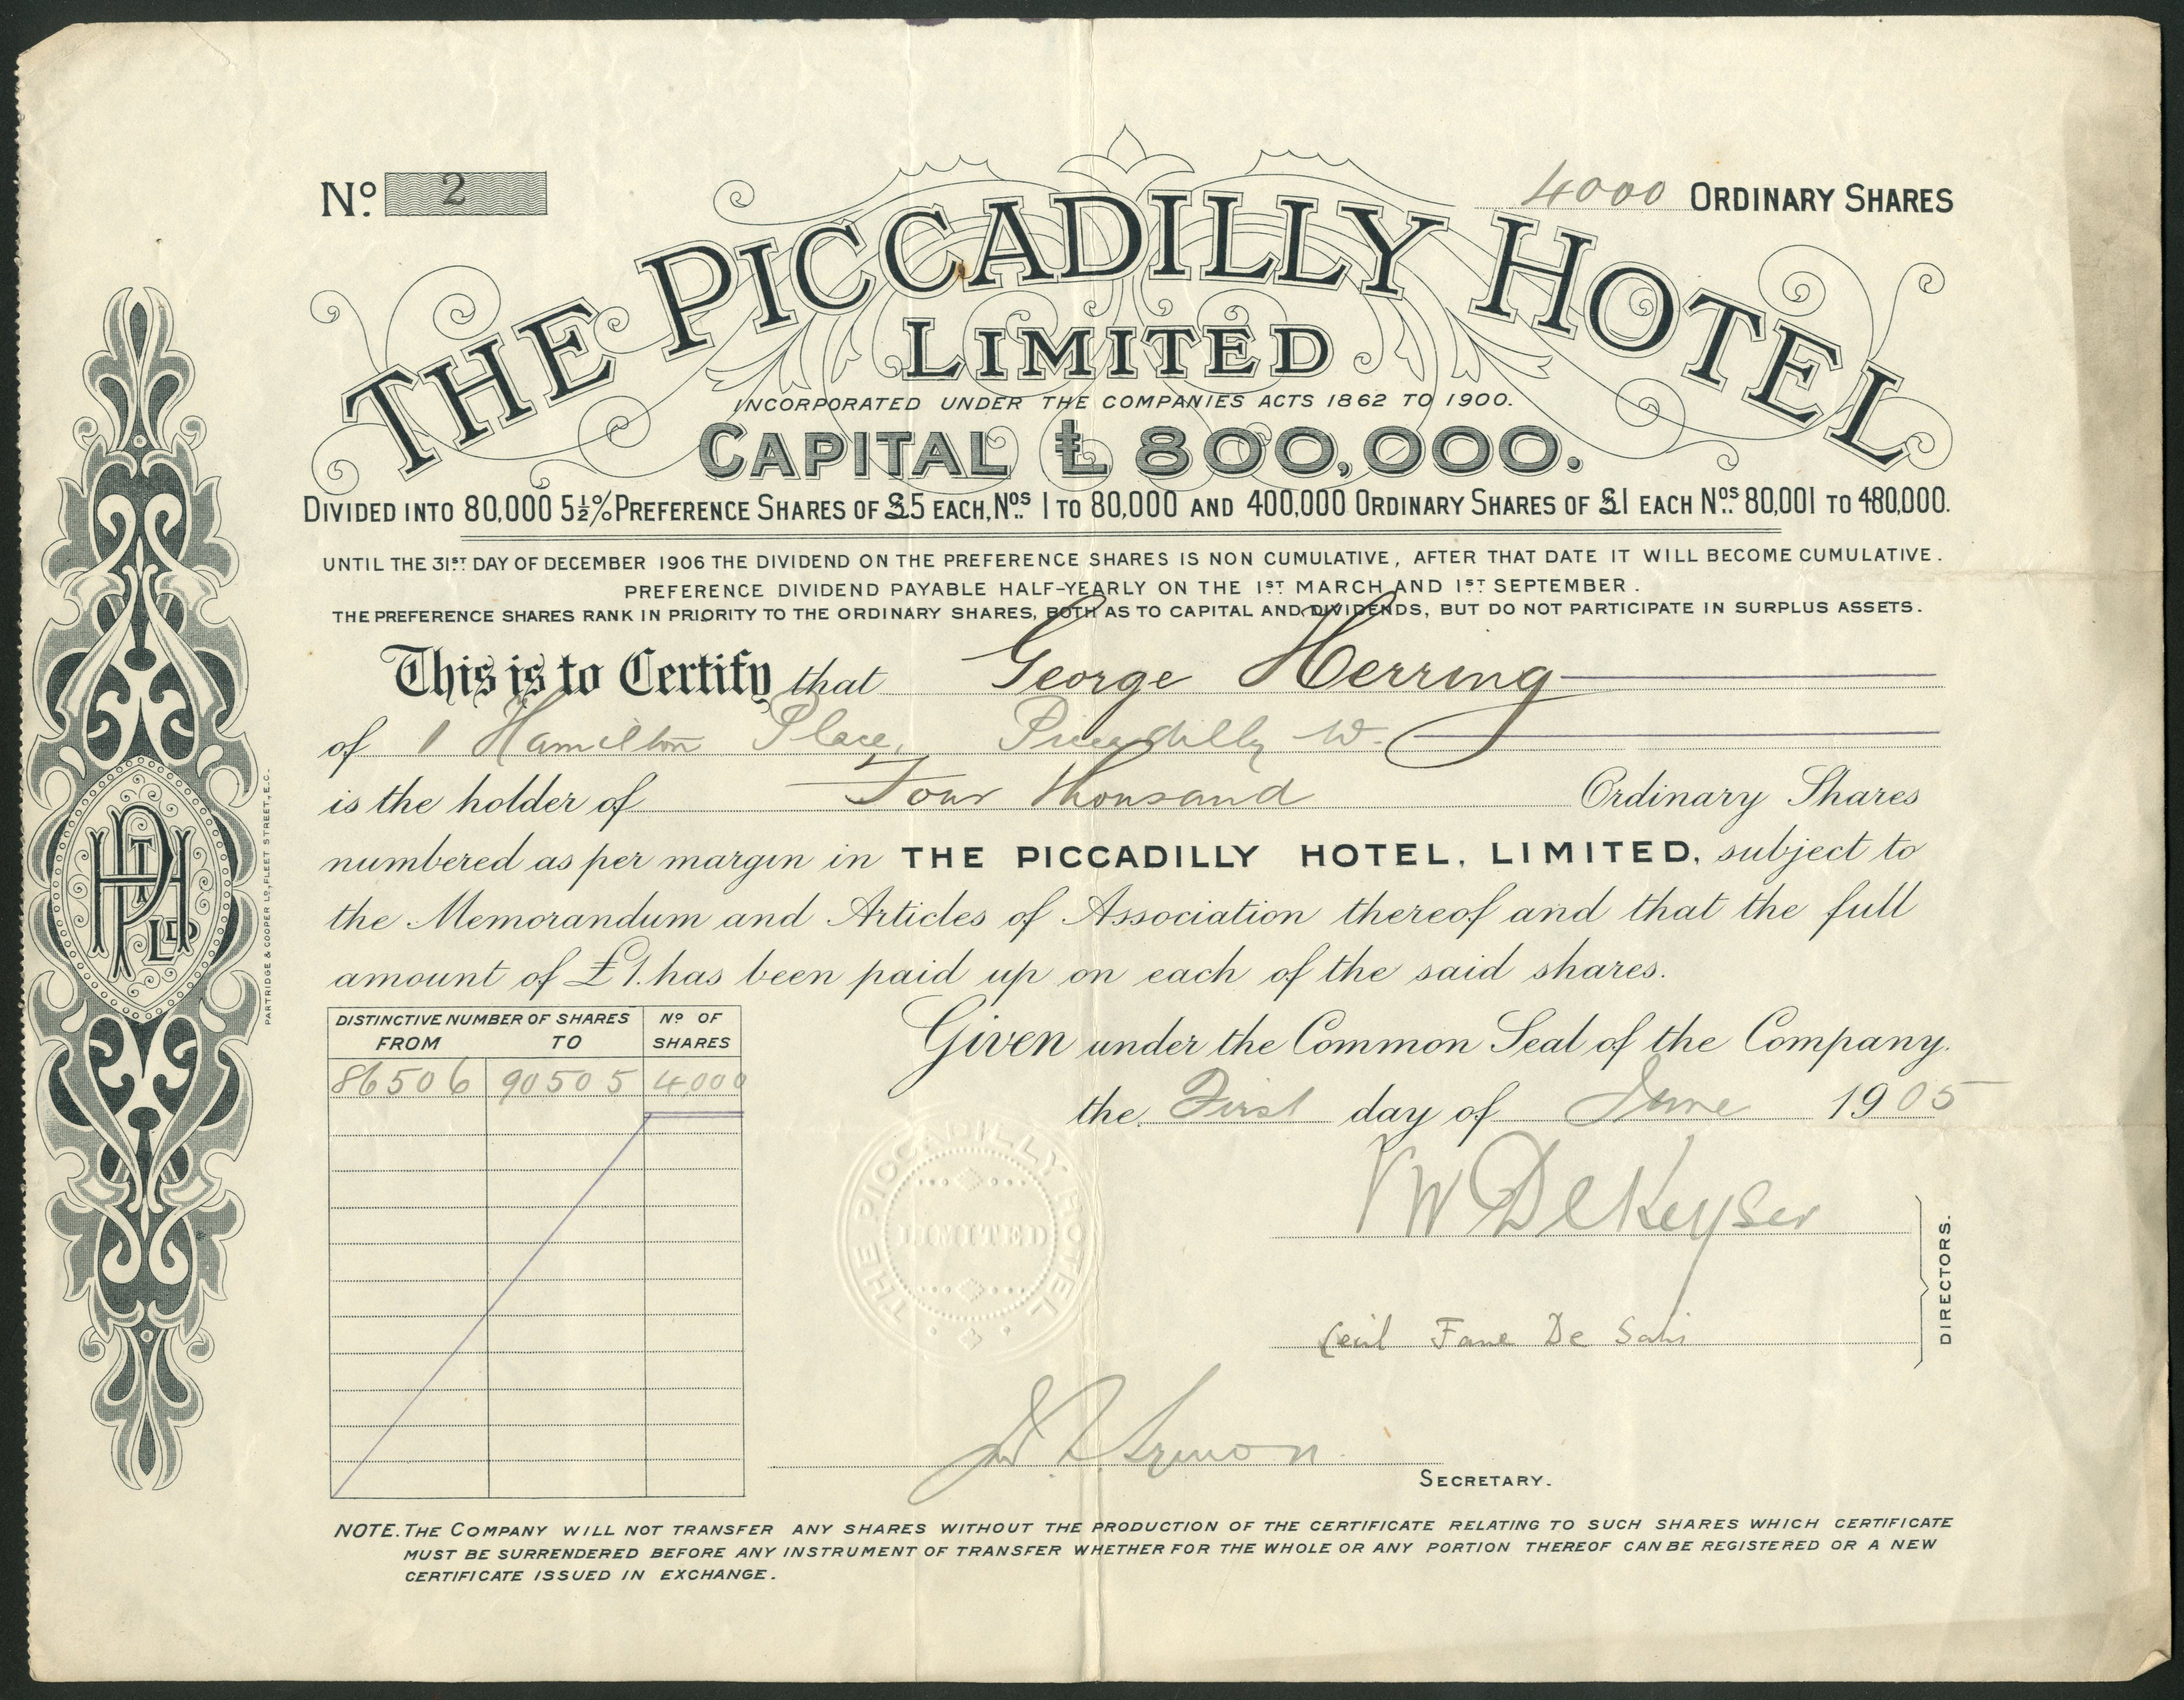 No. 2
4000 ORDINARY SHARES
THE PICCADILLY HOTEL
LIMITED
INCORPORATED UNDER THE COMPANIES ACTS 1862 TO 1900.
CAPITAL £800,000.
DIVIDED INTO 80,000 5½% PREFERENCE SHARES OF £5 EACH, Nos. 1 TO 80,000 AND 400,000 ORDINARY SHARES OF £1 EACH Nos. 80,001 TO 480,000.
UNTIL THE 31ST DAY OF DECEMBER 1906 THE DIVIDEND ON THE PREFERENCE SHARES IS NON CUMULATIVE, AFTER THAT DATE IT WILL BECOME CUMULATIVE.
PREFERENCE DIVIDEND PAYABLE HALF-YEARLY ON THE 1ST MARCH AND 1ST SEPTEMBER.
THE PREFERENCE SHARES RANK IN PRIORITY TO THE ORDINARY SHARES, BOTH AS TO CAPITAL AND DIVIDENDS, BUT DO NOT PARTICIPATE IN SURPLUS ASSETS.
This is to Certify that George Herring
of 1 Hamilton Place, Piccadilly W.
is the holder of Four Thousand Ordinary Shares
numbered as per margin in THE PICCADILLY HOTEL, LIMITED, subject to
the Memorandum and Articles of Association thereof and that the full
amount of £1. has been paid up on each of the said shares.
DISTINCTIVE NUMBER OF SHARES No OF
FROM TO SHARES
86506 90505 4,000
Given under the Common Seal of the Company.
the First day of June 1905
THE PICCADILLY HOTEL
LIMITED
W De Keyser
Cecil Fane De Salis
DIRECTORS.
SECRETARY.
NOTE. THE COMPANY WILL NOT TRANSFER ANY SHARES WITHOUT THE PRODUCTION OF THE CERTIFICATE RELATING TO SUCH SHARES WHICH CERTIFICATE
MUST BE SURRENDERED BEFORE ANY INSTRUMENT OF TRANSFER WHETHER FOR THE WHOLE OR ANY PORTION THEREOF CAN BE REGISTERED OR A NEW
CERTIFICATE ISSUED IN EXCHANGE.
PARTRIDGE & COOPER LD, FLEET STREET, E.C.
TPH LD